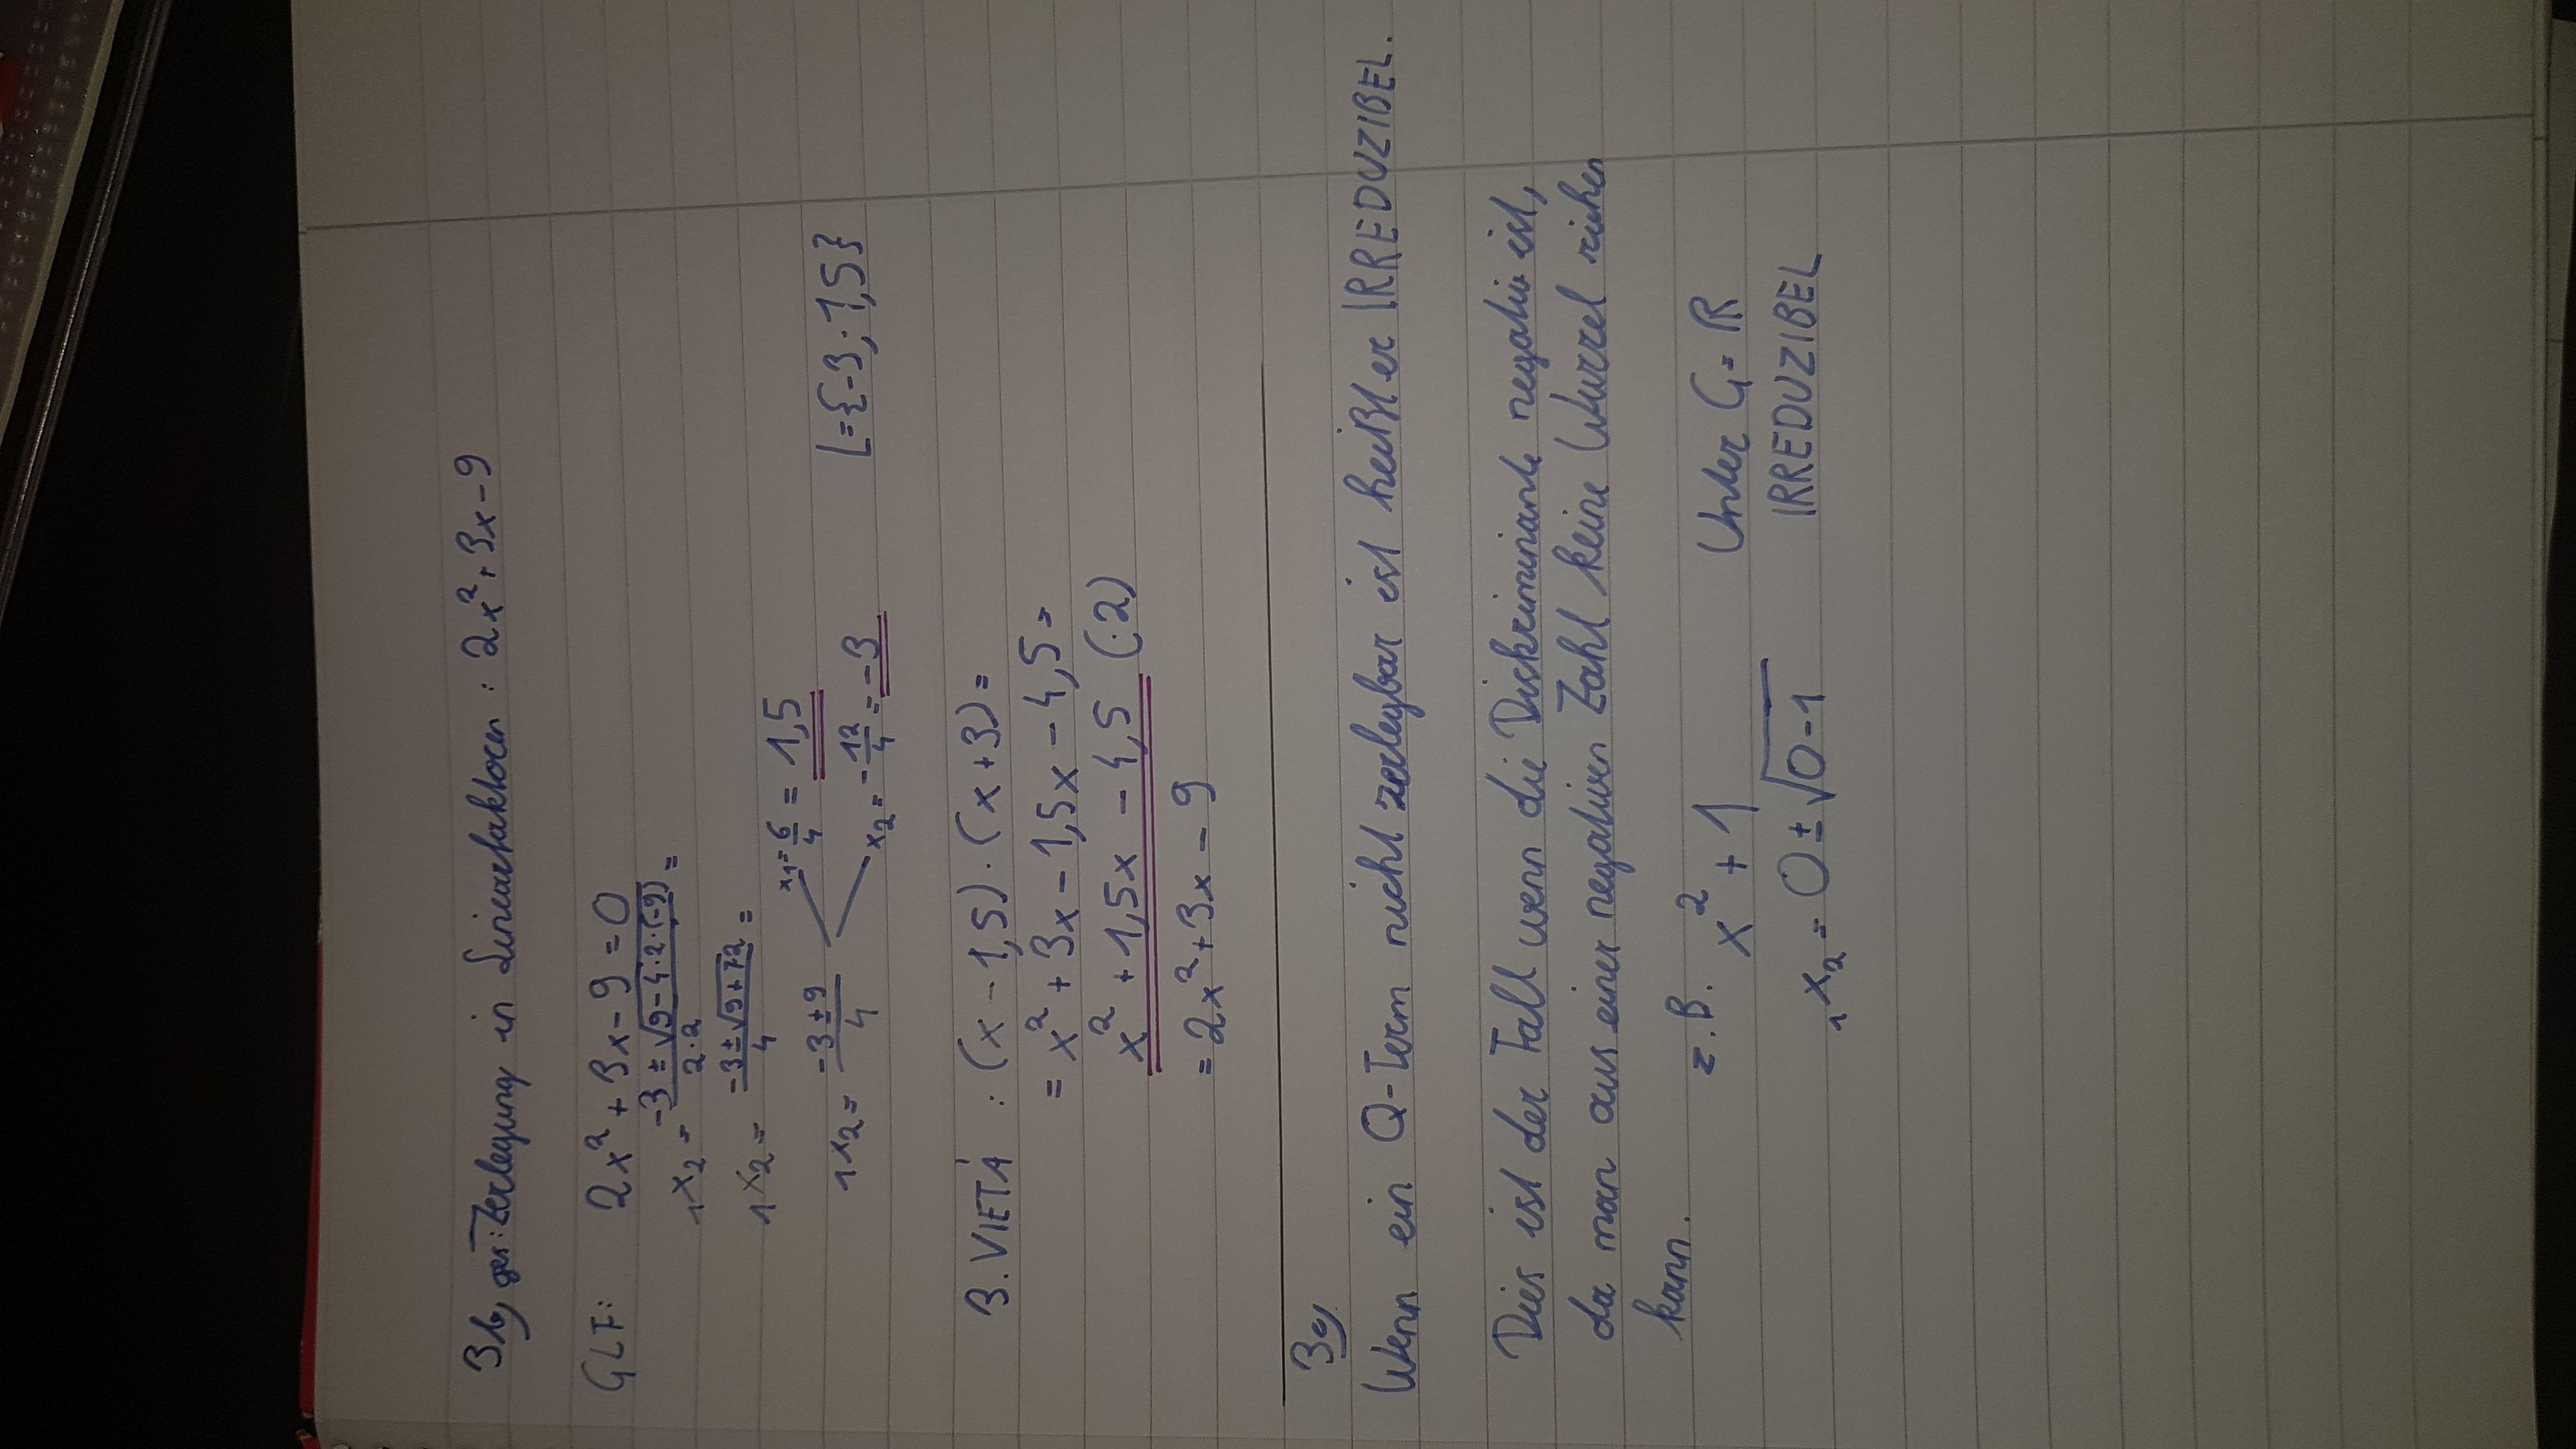 3b) ges: Zerlegung in Linearfaktoren : 2x² + 3x - 9
GLF: 2x² + 3x - 9 = 0
₁x₂ = (-3 ± √(9 - 4·2·(-9))) / (2·2) =
₁x₂ = (-3 ± √(9 + 72)) / 4 =
₁x₂ = (-3 ± 9) / 4
x₁ = 6/4 = 1,5
x₂ = -12/4 = -3
L = {-3; 1,5}
3. VIETÁ : (x - 1,5) · (x + 3) =
= x² + 3x - 1,5x - 4,5 =
x² + 1,5x - 4,5 (·2)
= 2x² + 3x - 9
3c)
Wenn ein Q-Term nicht zerlegbar ist heißt er IRREDUZIBEL.
Dies ist der Fall wenn die Diskriminante negativ ist,
da man aus einer negativen Zahl keine Wurzel ziehen
kann.
z.B. x² + 1
Unter G = ℝ
₁x₂ = 0 ± √(0 - 1)
IRREDUZIBEL